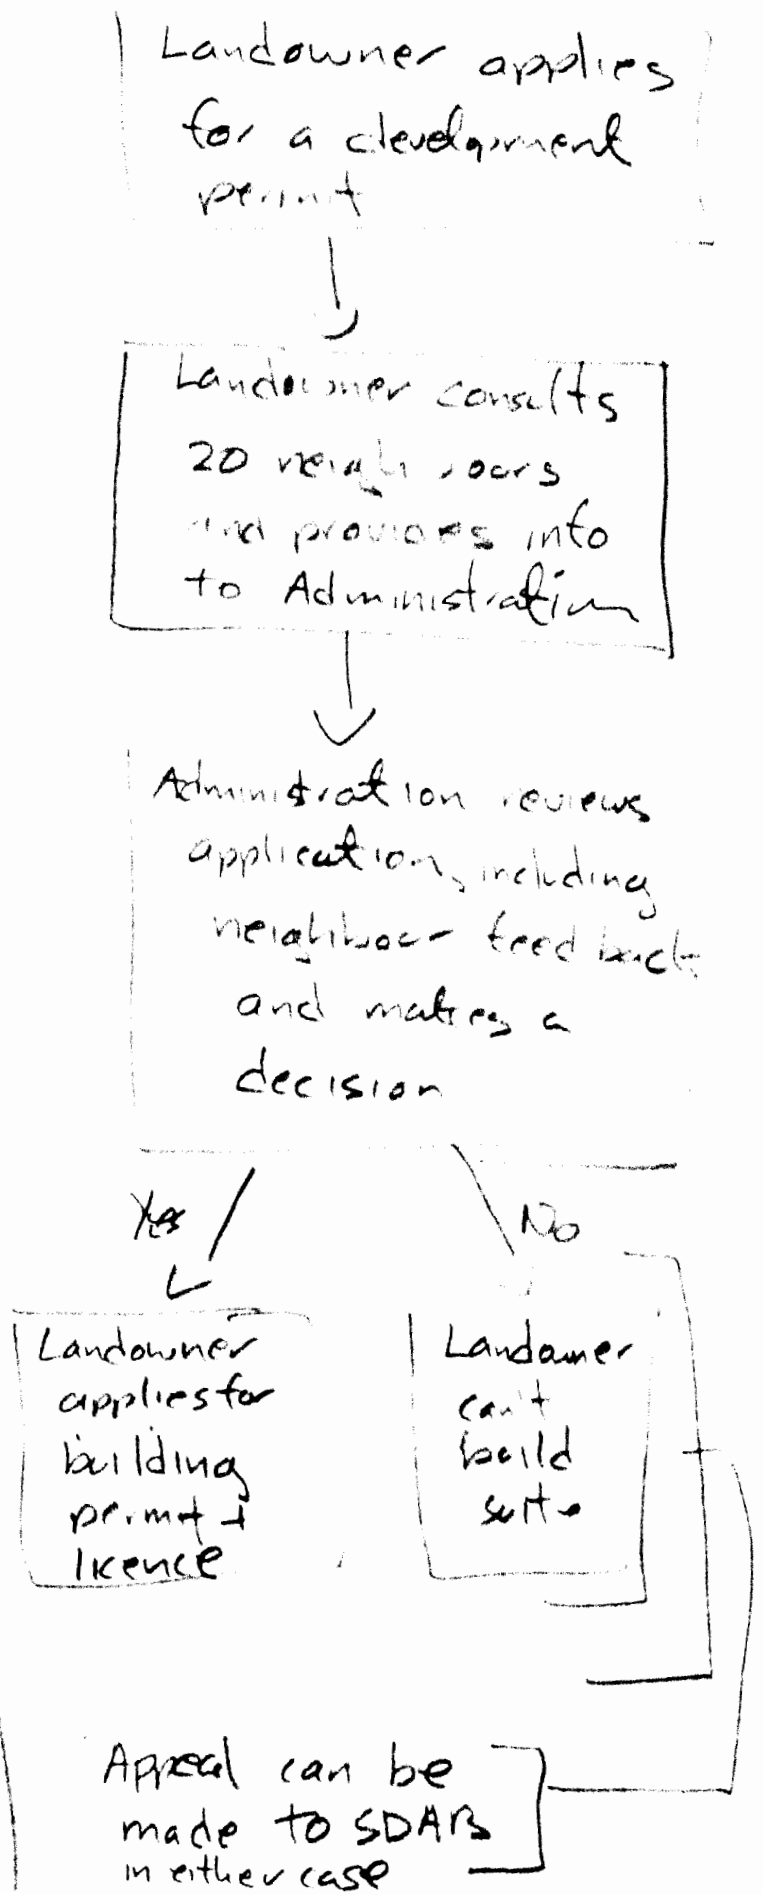 Landowner applies
for a development
permit
Landowner consults
20 neighbours
and provides info
to Administration
Administration reviews
application, including
neighbour feedback
and makes a
decision
Yes
No
Landowner
applies for
building
permit +
licence
Landowner
can't
build
suite
Appeal can be
made to SDAB
in either case